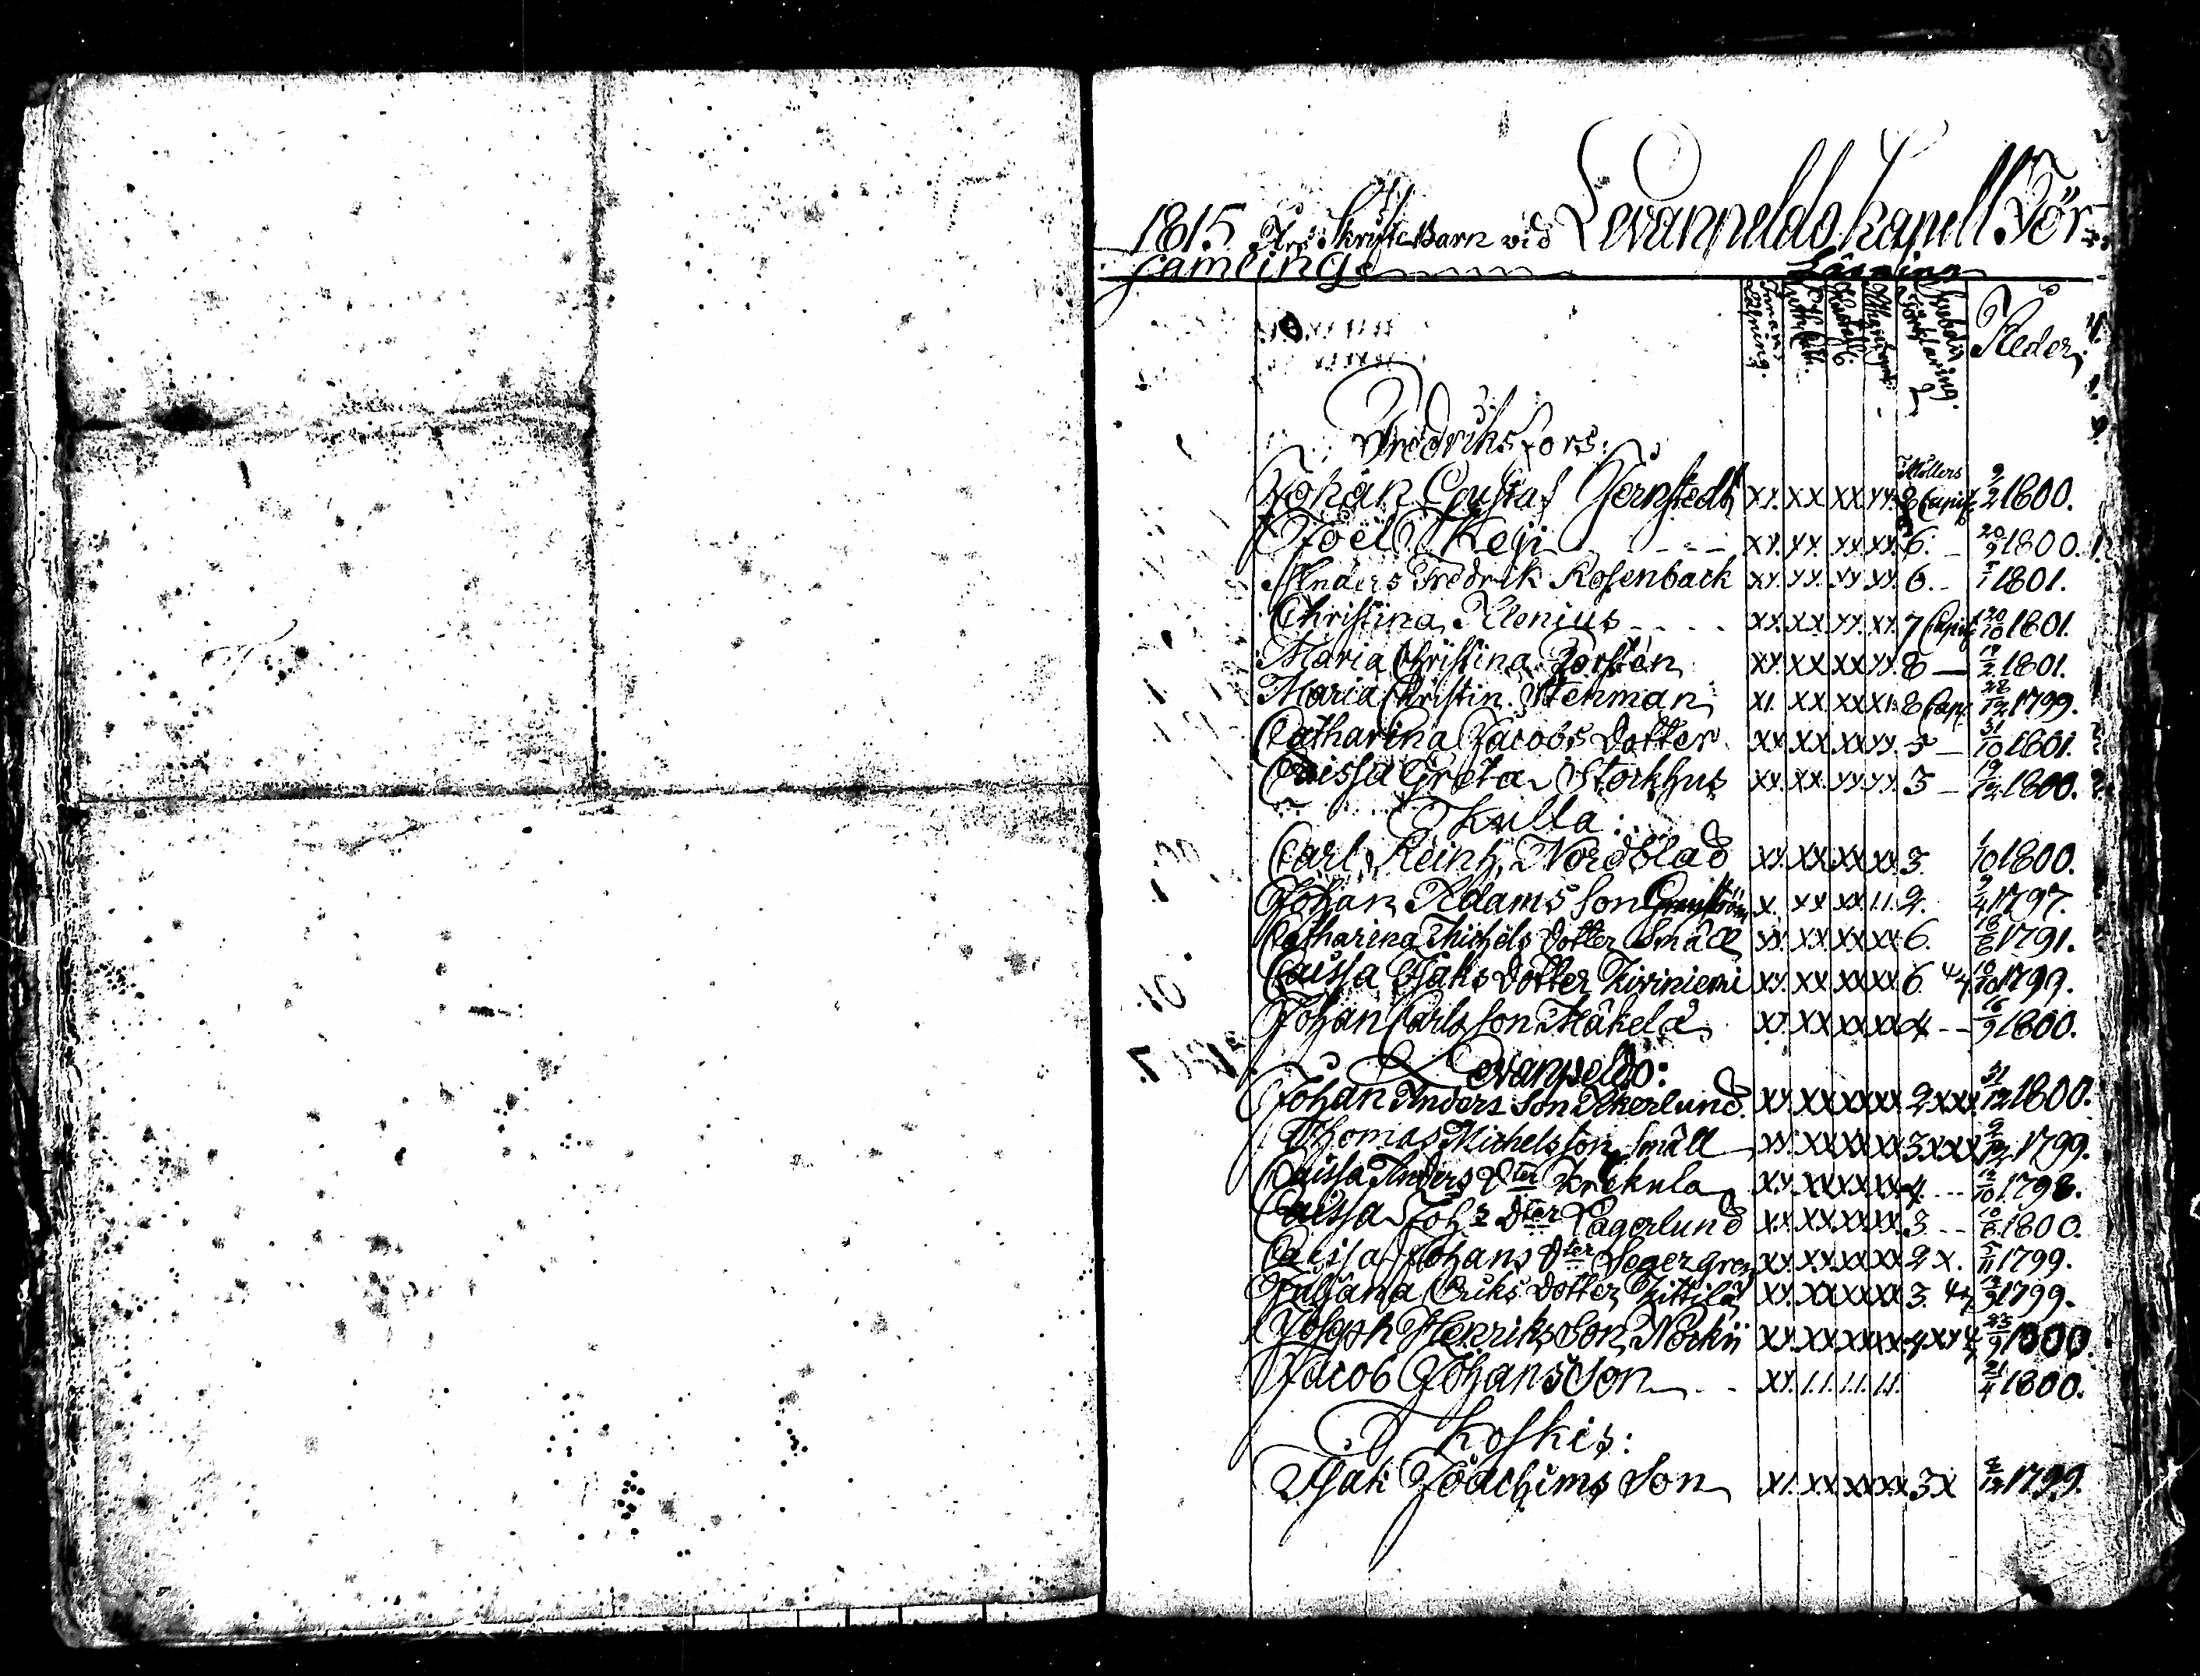 1815 Års Skrifte Barn vid Levanpeldo kapell För-
samlings
Läsning
Innan Läsning. Luth. Cat. Hustafl. Athan. Symb. Svebelii Förklaring. Ålder.
Fredriksfors:
Möllers
Johan Gustaf Jernstedt XX. XX XX XX. 8 Capit. 9/2 1800.
Joël Keji - - - XX. XX. XX XX. 6. - 20/9 1800.
Anders Fredrik Rosenback XX. XX. XX XX. 6. - 1801.
Christina Alenius - - - - XX. XX. XX. XX. 7 Capit. 20/10 1801.
Maria Christina Forstén XX. XX XX XX. 8 — 1801.
Maria Christin. Stenman XX. XX XX XX. 8 Cap. 28/12 1799.
Catharina Jacobs dotter XX. XX. XX XX. 5 — 31/10 1801.
Caissa Greta Storkhus XX. XX. XX XX. 3 — 19/12 1800.
Skulla:
Carl Reinh. Nordblad XX. XX XX XX 3. 1/10 1800.
Johan Adams son X. XX XX 11. 2. 9/4 1797.
Catharina Michels dotter Småll XX. XX XX XX 6. 18/8 1791.
Caissa Isaks dotter Kiviniemi XX. XX XX XX 6. 10/10 1799.
Johan Carls son Mäkelä XX. XX XX XX 4 - - 16/9 1800.
Levanpeldo:
Johan Anders Son Åkerlund XX. XX XX XX 2 XXX 31/12 1800.
Thomas Michels son Småll XX. XX XX XX 3 XXX 9/12 1799.
Caissa Anders Dter Krekula XX. XX XX XX 4. - - - 12/10 1798.
Caissa Joh: Dter Lagerlund XX. XX XX XX. 3. - - 10/8 1800.
Caisa Johans Dter Segergren XX. XX XX XX 2 X. 5/11 1799.
Juliana Eriks dotter Kittilä XX. XX XX XX 3. 1799.
Joseph Henriks Son Nockii XX. XX XX XX 4 XX 23/9 1800.
Jacob Johans Son - - XX. 11. 11. 11. 21/4 1800.
Koskis:
Isak Joachims Son XX. XX XX XX 3 X 8/12 1799.